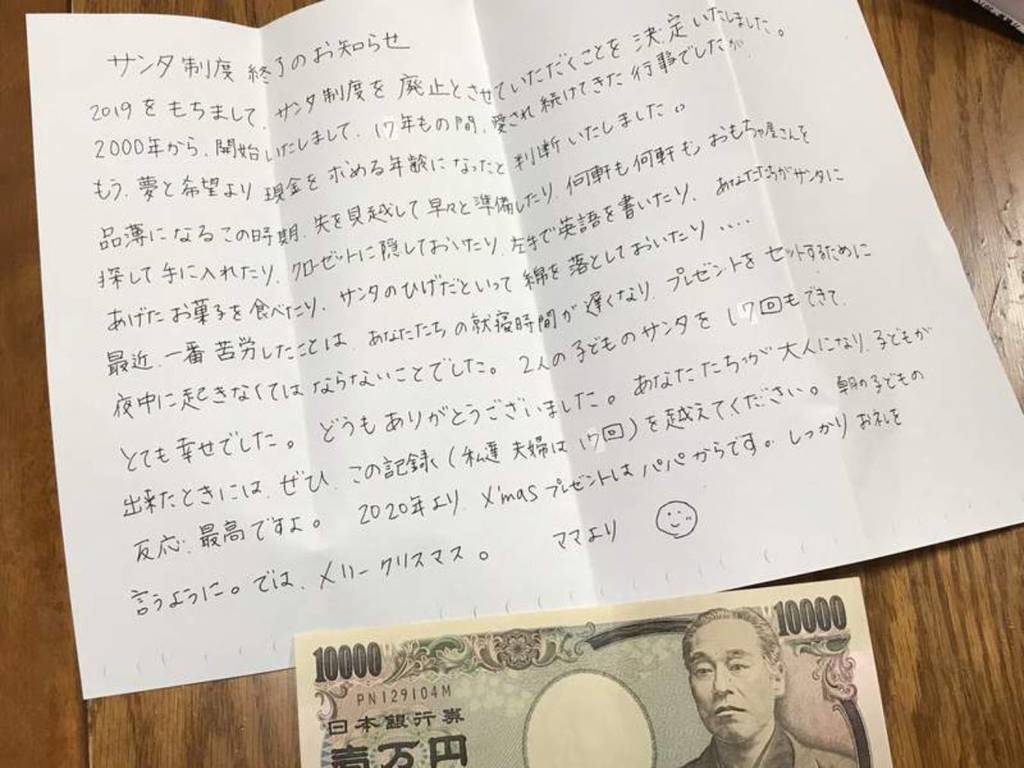 サンタ制度 終了のお知らせ
2019をもちまして、サンタ制度を廃止とさせていただくことを決定いたしました。
2000年から、開始いたしまして、17年もの間、愛され続けてきた行事でしたが
もう、夢と希望より現金を求める年齢になったと判断いたしました。
品薄になるこの時期、先を見越して早々と準備したり、何軒も何軒もおもちゃ屋さんを
探して手に入れたり、クローゼットに隠しておいたり、左手で英語を書いたり、あなたたちがサンタに
あげたお菓子を食べたり、サンタのひげだといって綿を落としておいたり....
最近、一番苦労したことは、あなたたちの就寝時間が遅くなり、プレゼントをセットするために
夜中に起きなくてはならないことでした。2人の子どものサンタを17回もできて、
とても幸せでした。どうもありがとうございました。あなたたちが大人になり、子どもが
出来たときには、ぜひ、この記録(私達夫婦は17回)を越えてください。朝の子どもの
反応、最高ですよ。2020年より、X'masプレゼントはパパからです。しっかりお礼を
言うように。では、メリークリスマス。 ママより
10000
10000
PN129104M
日本銀行券
壱万円